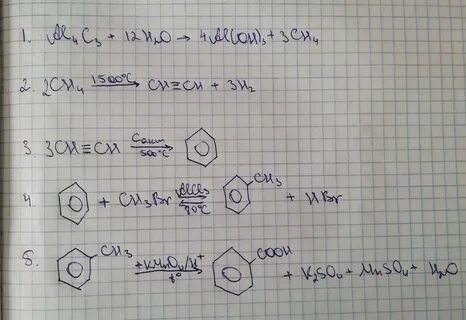 1. Al₄C₃ + 12H₂O → 4Al(OH)₃ + 3CH₄
2. 2CH₄ 1500°C → CH≡CH + 3H₂
3. 3CH≡CH Cакт 500°C →
4. + CH₃Br AlCl₃ 80°C ⇄ CH₃ + HBr
5. CH₃ +KMnO₄/H⁺ t° → COOH + K₂SO₄ + MnSO₄ + H₂O